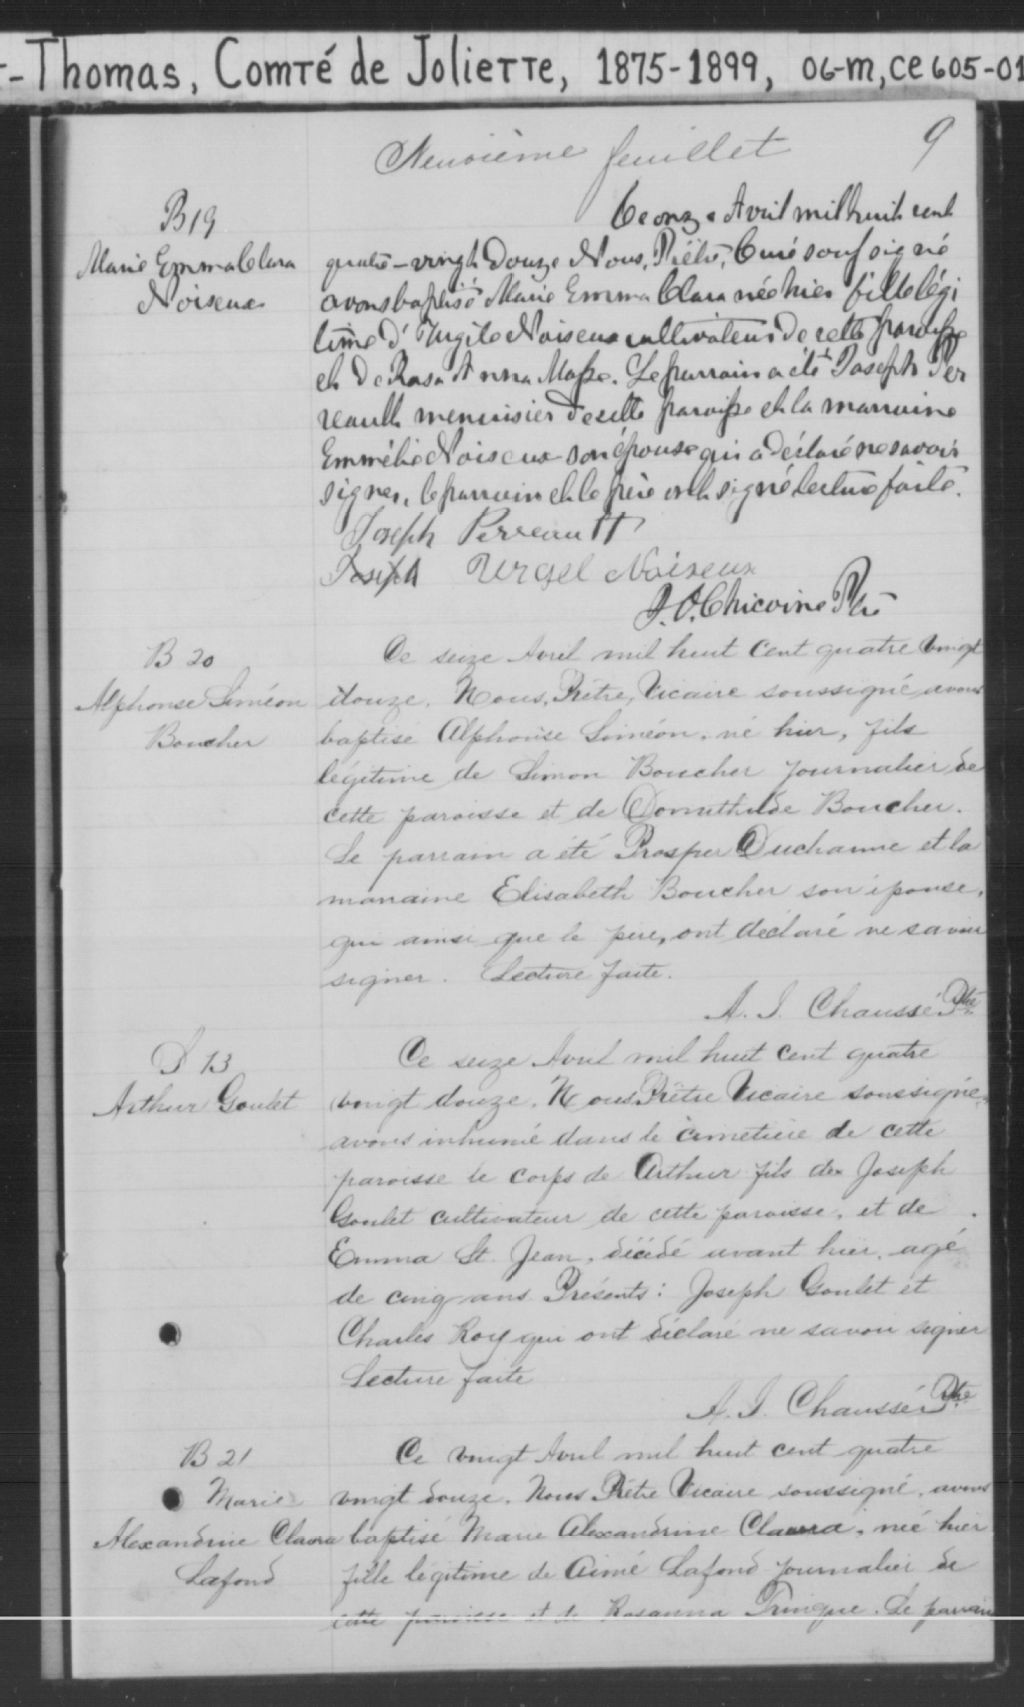 -Thomas, Comté de Joliette, 1875-1899, 06-M, CE605-01
Neuvième feuillet 9
B 19
Marie Emma Clara
Noiseux
Ce onze Avril mil huit cent
quatre-vingt douze Nous, Prêtre, Curé soussigné
avons baptisé Marie Emma Clara née hier fille légi
time d'Urgile Noiseux cultivateur de cette paroisse
et de Rosa Anna Masse. Le parrain a été Joseph Per
reault menuisier de cette paroisse et la marraine
Emmélie Noiseux son épouse qui a déclaré ne savoir
signer, le parrain et le père ont signé lecture faite.
Joseph Perreault
Joseph Urgel Noiseux
J.O. Chicoine Ptre
B 20
Alphonse Siméon
Boucher
Ce seize Avril mil huit cent quatre vingt
douze. Nous, Prêtre, Vicaire soussigné, avons
baptisé Alphonse Siméon, né hier, fils
légitime de Simon Boucher journalier de
cette paroisse et de Domithilde Boucher.
Le parrain a été Prosper Ducharme et la
marraine Elisabeth Boucher son épouse,
qui ainsi que le père, ont déclaré ne savoir
signer. Lecture faite.
A. I. Chaussé Ptre
S 13
Arthur Goulet
Ce seize Avril mil huit cent quatre
vingt douze. Nous Prêtre Vicaire soussigné,
avons inhumé dans le cimetière de cette
paroisse le corps de Arthur fils de Joseph
Goulet cultivateur de cette paroisse, et de
Emma St. Jean, décédé avant hier, agé
de cinq ans. Présents: Joseph Goulet et
Charles Roy qui ont déclaré ne savoir signer
Lecture faite
A. I. Chaussé Ptre
B 21
Marie
Alexandrine Clara
Lafond
Ce vingt Avril mil huit cent quatre
vingt douze. Nous Prêtre Vicaire soussigné, avons
baptisé Marie Alexandrine Claura, née hier
fille légitime de Aimé Lafond journalier de
cette paroisse et de Rosanna Trinque. Le parrain